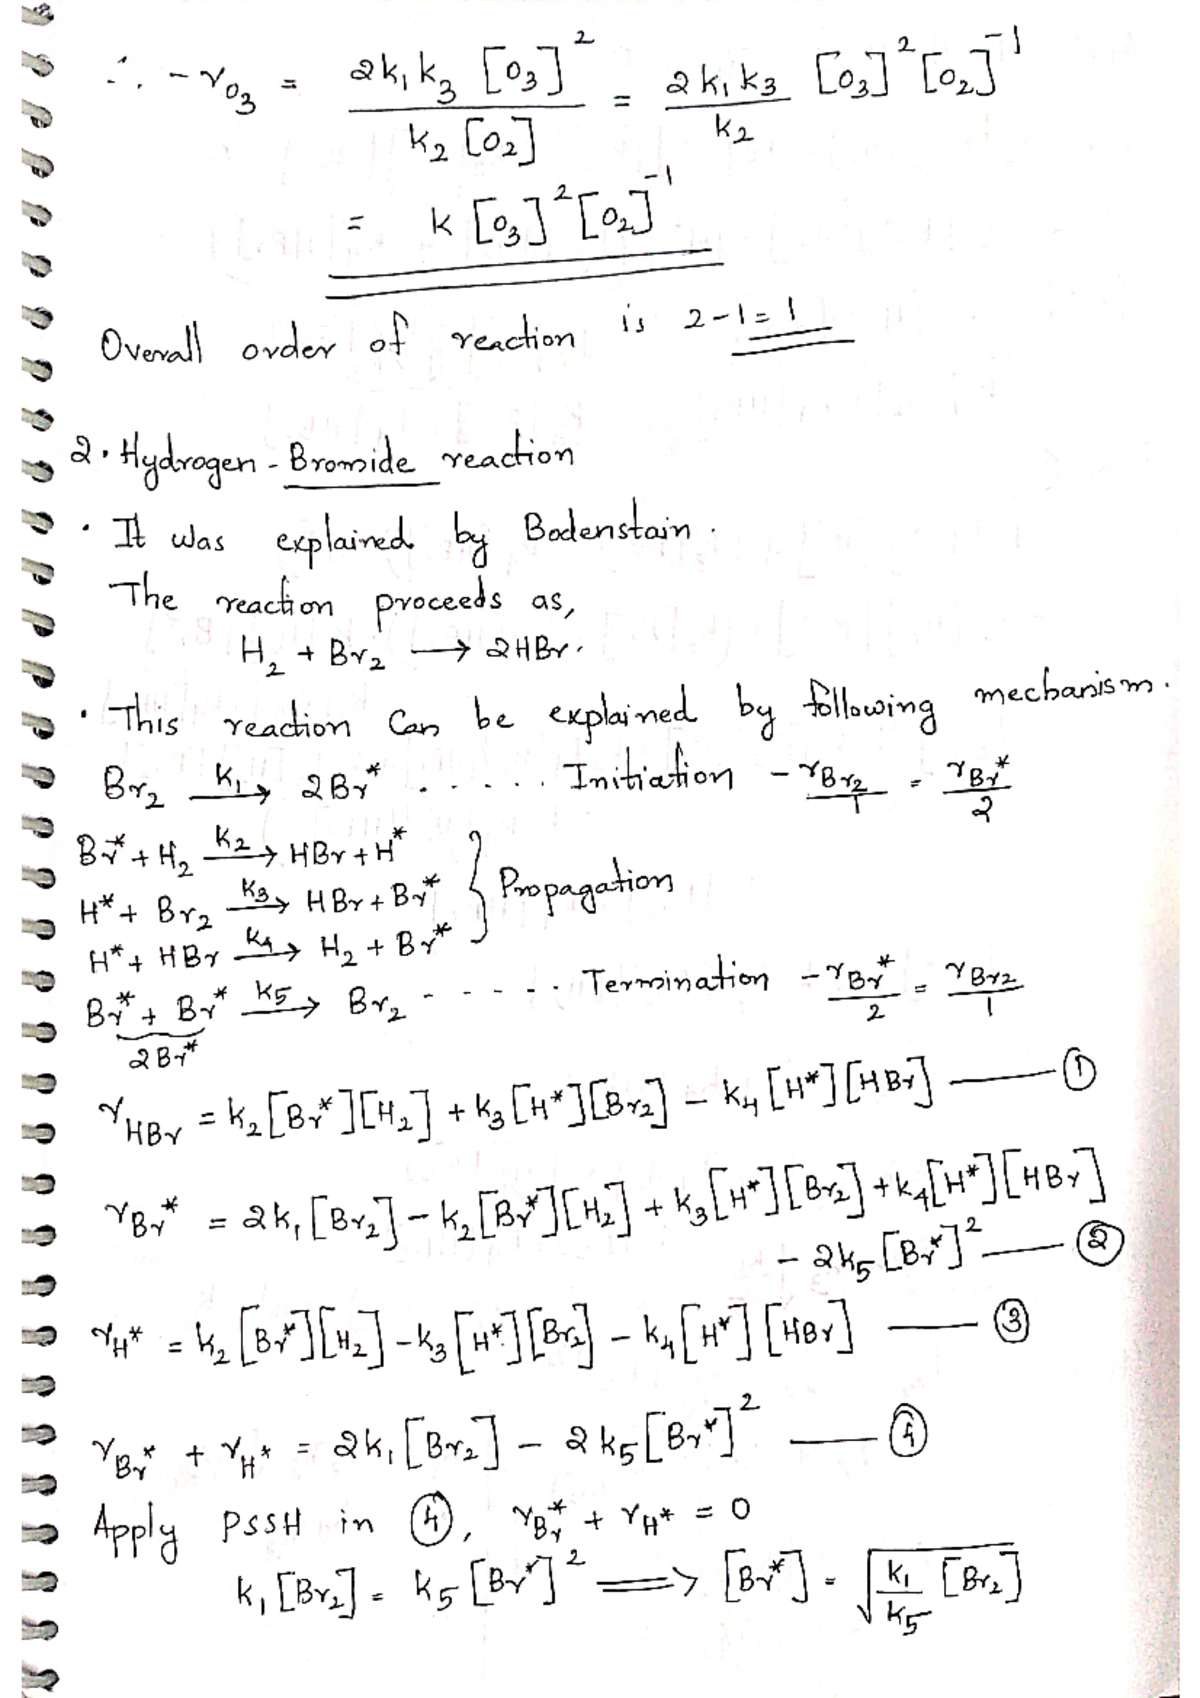 ∴ -r_O3 = 2k1 k3 [O3]^2 / k2 [O2] = 2k1 k3 / k2 [O3]^2 [O2]^-1
= k [O3]^2 [O2]^-1
Overall order of reaction is 2-1 = 1
2. Hydrogen - Bromide reaction
• It was explained by Bodenstain.
The reaction proceeds as,
H2 + Br2 → 2HBr.
• This reaction can be explained by following mechanism.
Br2 →(k1) 2Br* ...... Initiation -r_Br2 / 1 = r_Br* / 2
Br* + H2 →(k2) HBr + H*
H* + Br2 →(k3) HBr + Br* } Propagation
H* + HBr →(k4) H2 + Br*
Br* + Br* →(k5) Br2 - - - - - Termination -r_Br* / 2 = r_Br2 / 1
2Br*
r_HBr = k2[Br*][H2] + k3[H*][Br2] - k4[H*][HBr] —— ①
r_Br* = 2k1[Br2] - k2[Br*][H2] + k3[H*][Br2] + k4[H*][HBr]
- 2k5[Br*]^2 —— ②
r_H* = k2[Br*][H2] - k3[H*][Br2] - k4[H*][HBr] —— ③
r_Br* + r_H* = 2k1[Br2] - 2k5[Br*]^2 —— ④
Apply PSSH in ④, r_Br* + r_H* = 0
k1[Br2] = k5[Br*]^2 ⟹ [Br*] = √(k1/k5 [Br2])